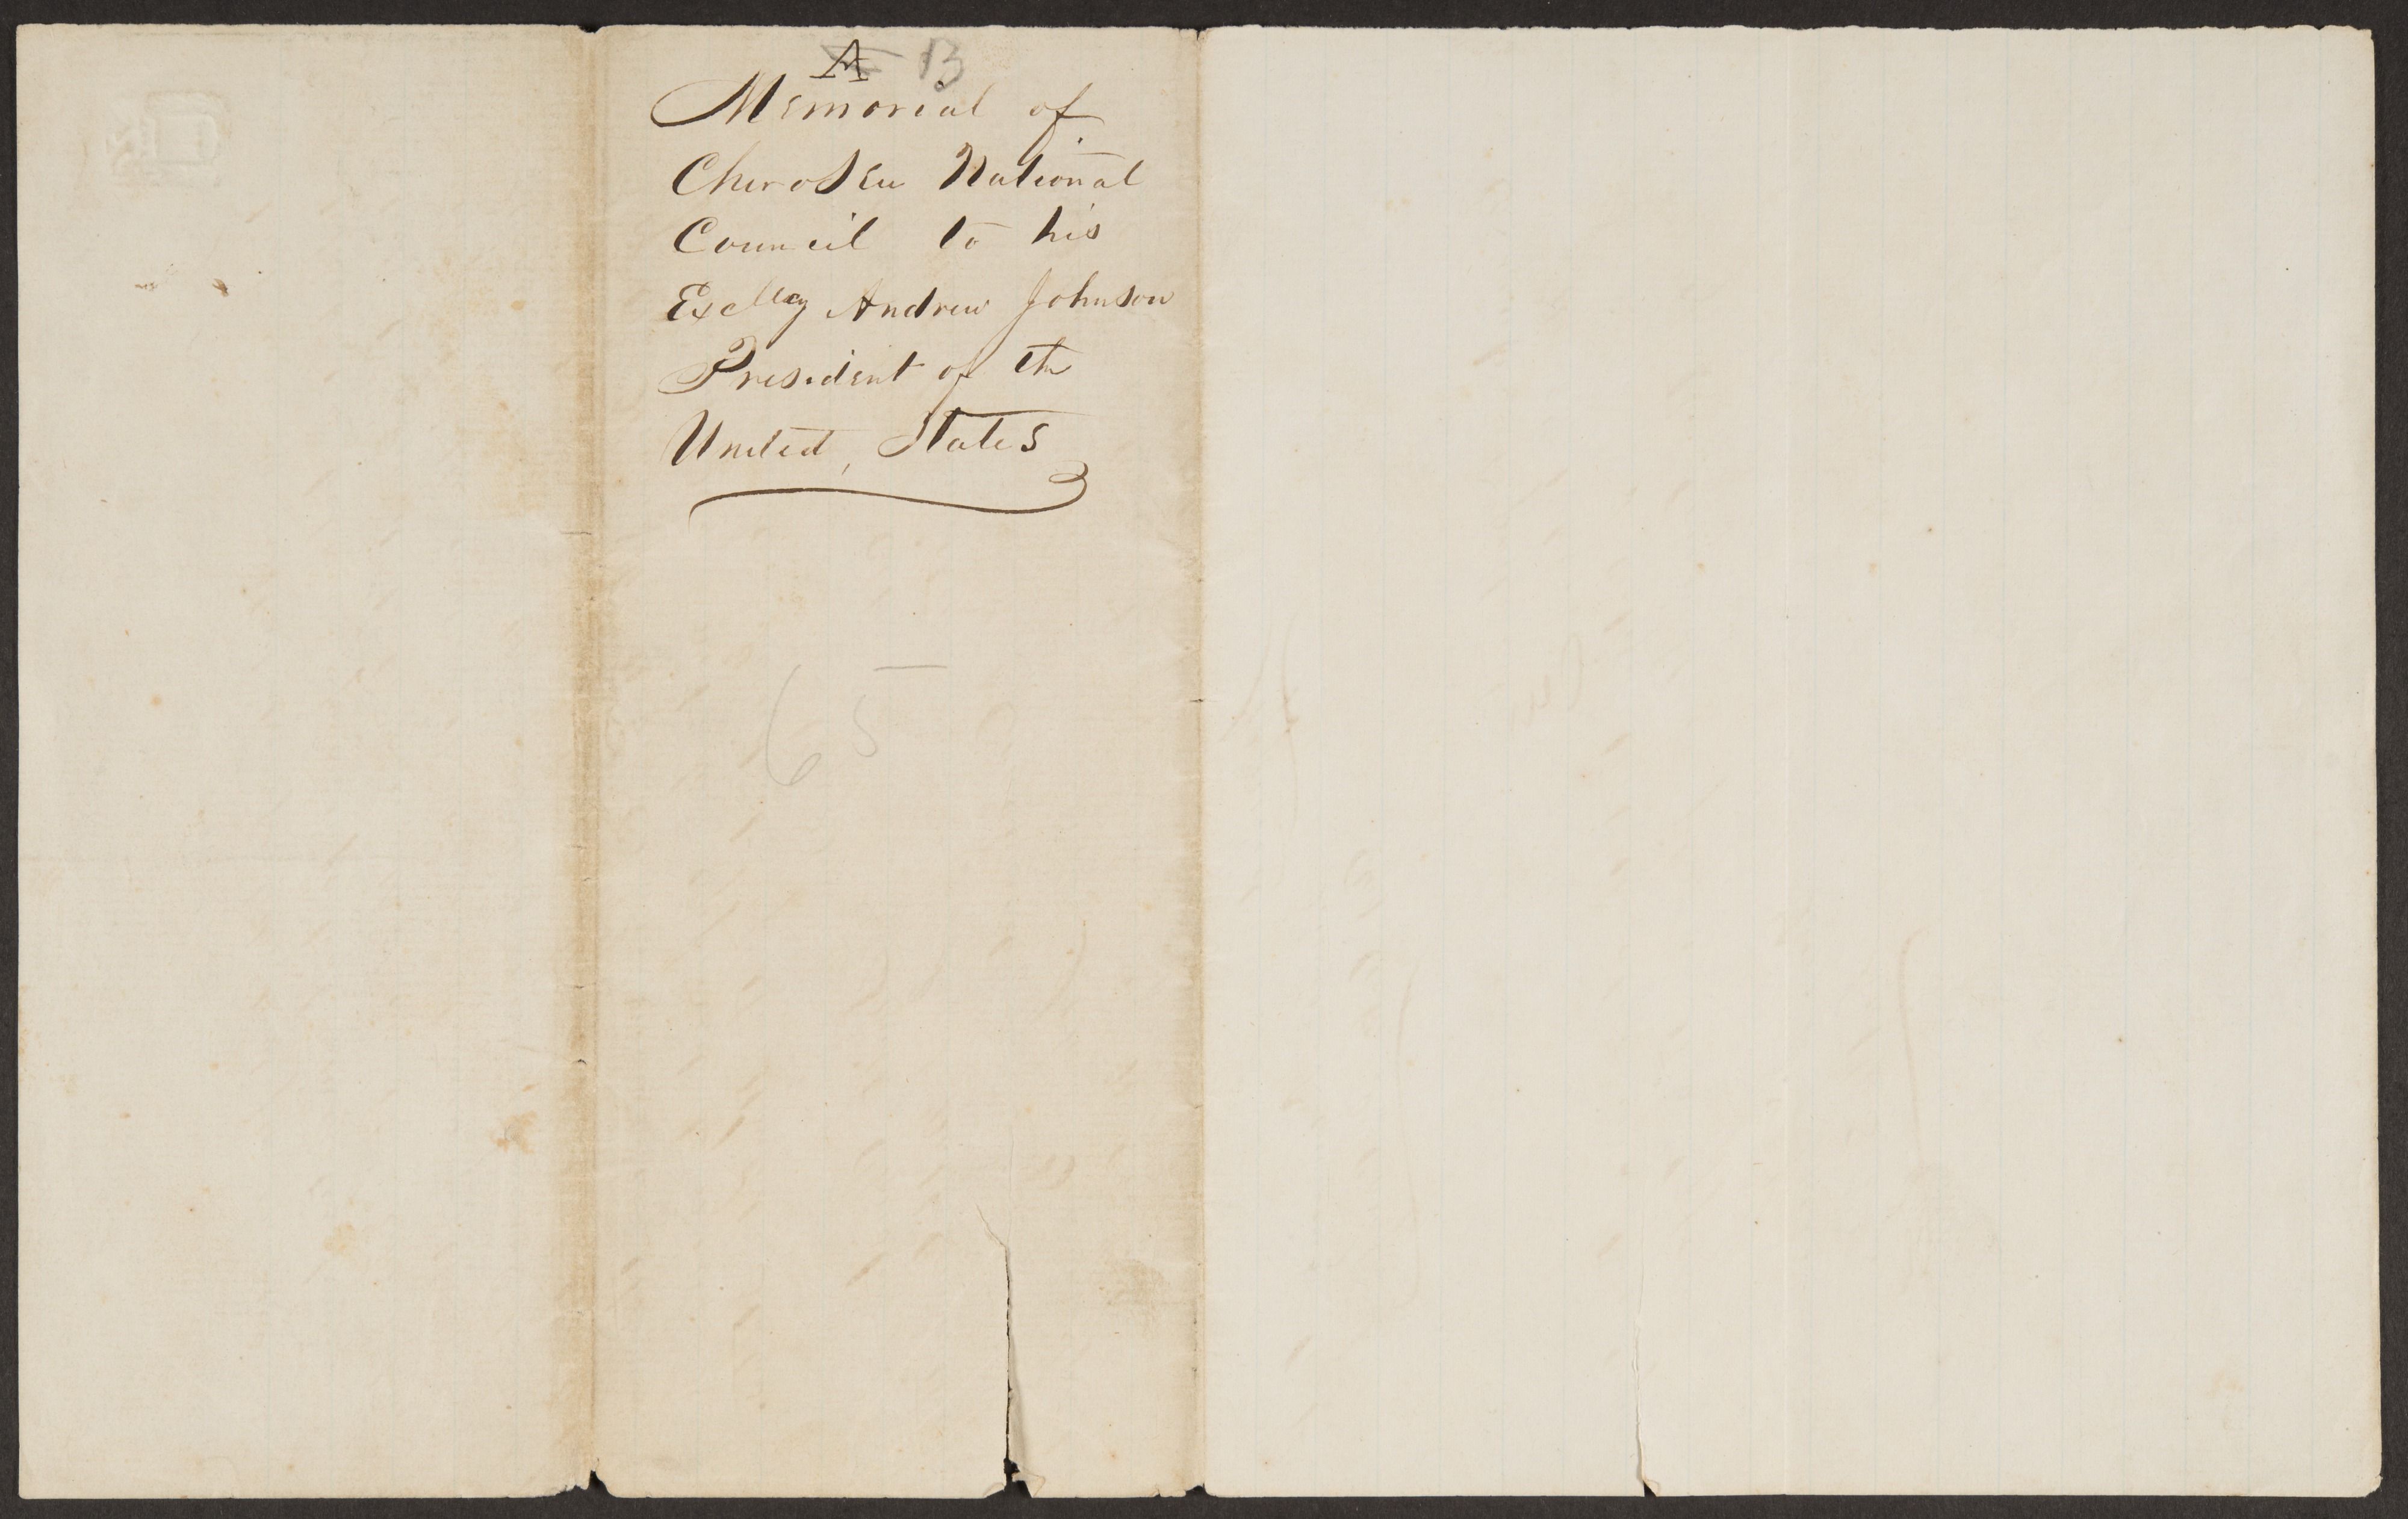 A B
Memorial of
Cherokee National
Council to his
Exclley Andrew Johnson
President of the
United, States
65